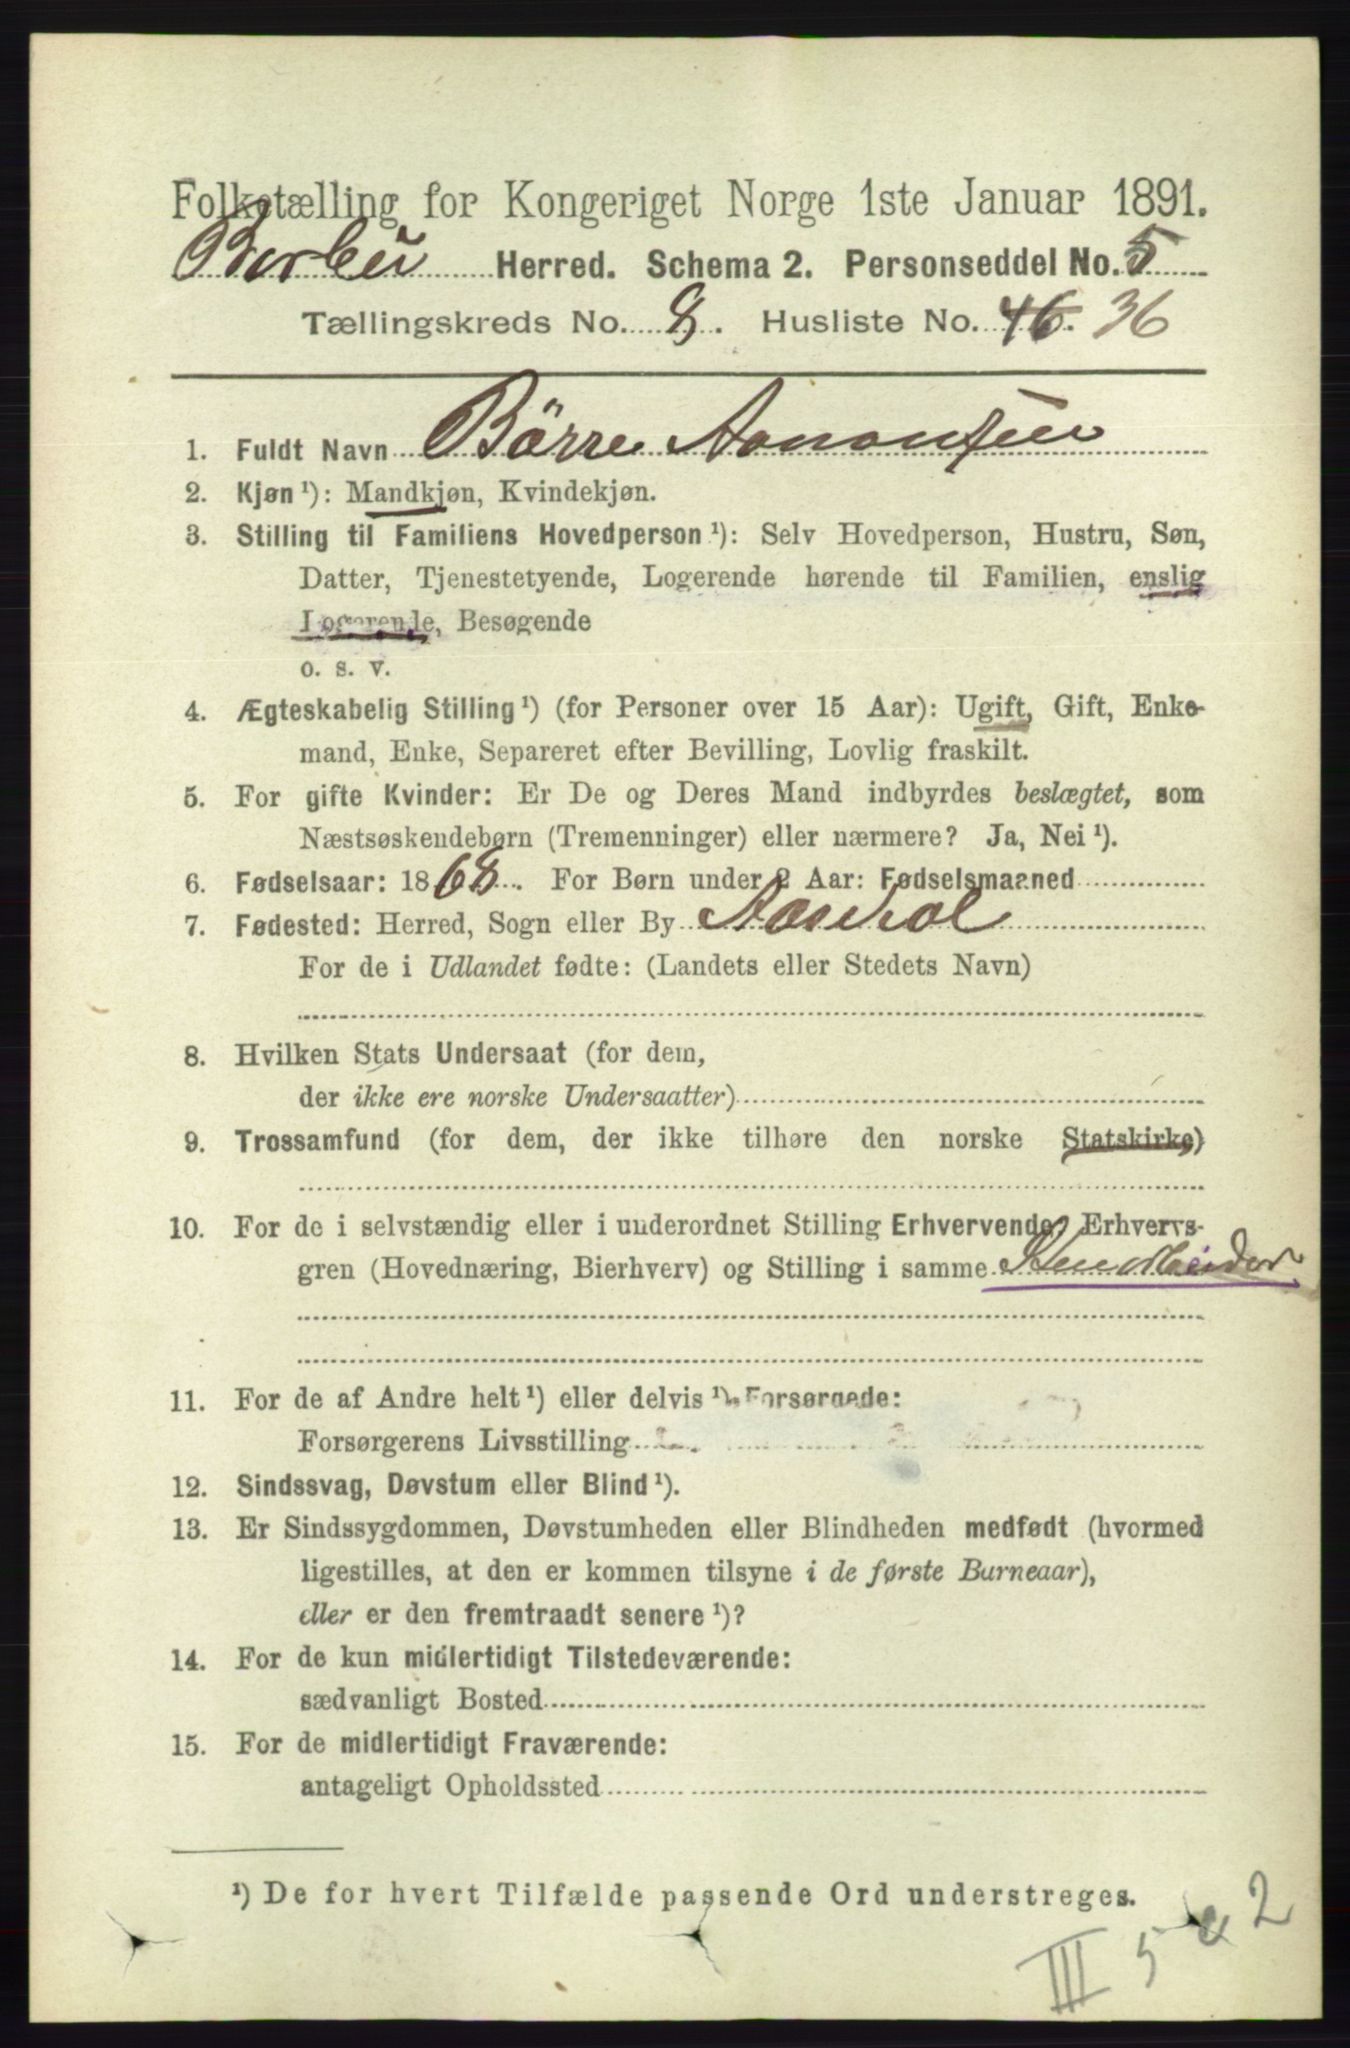 Folketælling for Kongeriget Norge 1ste Januar 1891.
Barbu Herred. Schema 2. Personseddel No. 5
Tællingskreds No. 8. Husliste No. 46. 36
1. Fuldt Navn Börre Aanonsen
2. Kjøn ¹): Mandkjøn, Kvindekjøn.
3. Stilling til Familiens Hovedperson ¹): Selv Hovedperson, Hustru, Søn,
Datter, Tjenestetyende, Logerende hørende til Familien, enslig
Logerende, Besøgende
o. s. v.
4. Ægteskabelig Stilling ¹) (for Personer over 15 Aar): Ugift, Gift, Enke-
mand, Enke, Separeret efter Bevilling, Lovlig fraskilt.
5. For gifte Kvinder: Er De og Deres Mand indbyrdes beslægtet, som
Næstsøskendebørn (Tremenninger) eller nærmere? Ja, Nei ¹).
6. Fødselsaar: 1868. For Børn under 2 Aar: Fødselsmaaned
7. Fødested: Herred, Sogn eller By Aaseral
For de i Udlandet fødte: (Landets eller Stedets Navn)
8. Hvilken Stats Undersaat (for dem,
der ikke ere norske Undersaatter)
9. Trossamfund (for dem, der ikke tilhøre den norske Statskirke)
10. For de i selvstændig eller i underordnet Stilling Erhvervende: Erhvervs-
gren (Hovednæring, Bierhverv) og Stilling i samme Stenarbeider
11. For de af Andre helt ¹) eller delvis ¹) Forsørgede:
Forsørgerens Livsstilling
12. Sindssvag, Døvstum eller Blind ¹).
13. Er Sindssygdommen, Døvstumheden eller Blindheden medfødt (hvormed
ligestilles, at den er kommen tilsyne i de første Barneaar),
eller er den fremtraadt senere ¹)?
14. For de kun midlertidigt Tilstedeværende:
sædvanligt Bosted
15. For de midlertidigt Fraværende:
antageligt Opholdssted
¹) De for hvert Tilfælde passende Ord understreges.
III 5 a 2